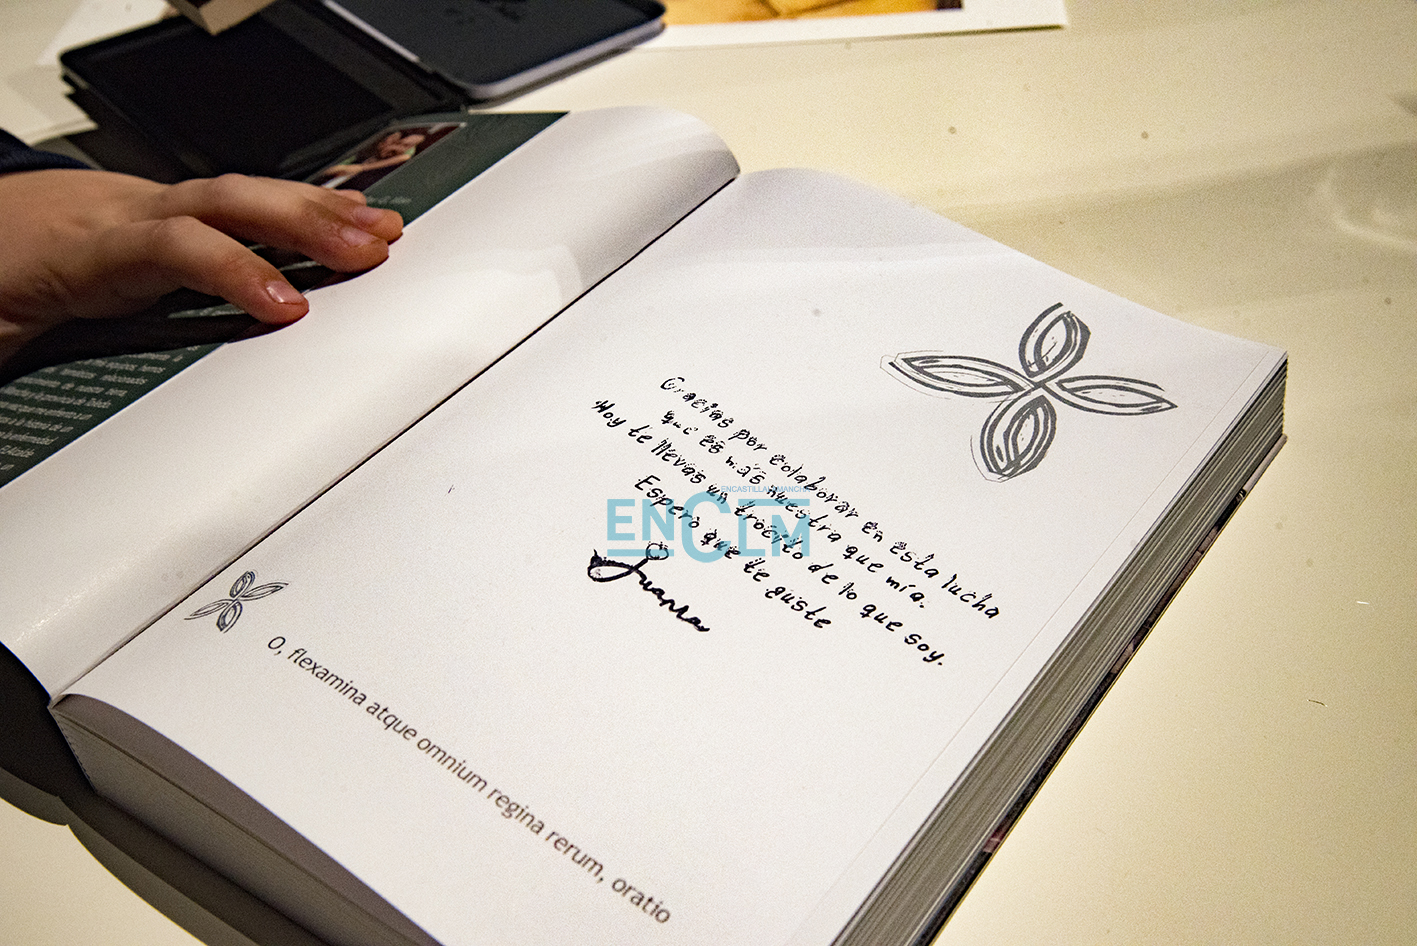 Gracias por colaborar en esta lucha
que es más nuestra que mía.
Hoy te llevas un trocito de lo que soy.
Espero que te guste
Juanma
O, flexamina atque omnium regina rerum, oratio
ENCASTILLALAMANCHA
ENCLM